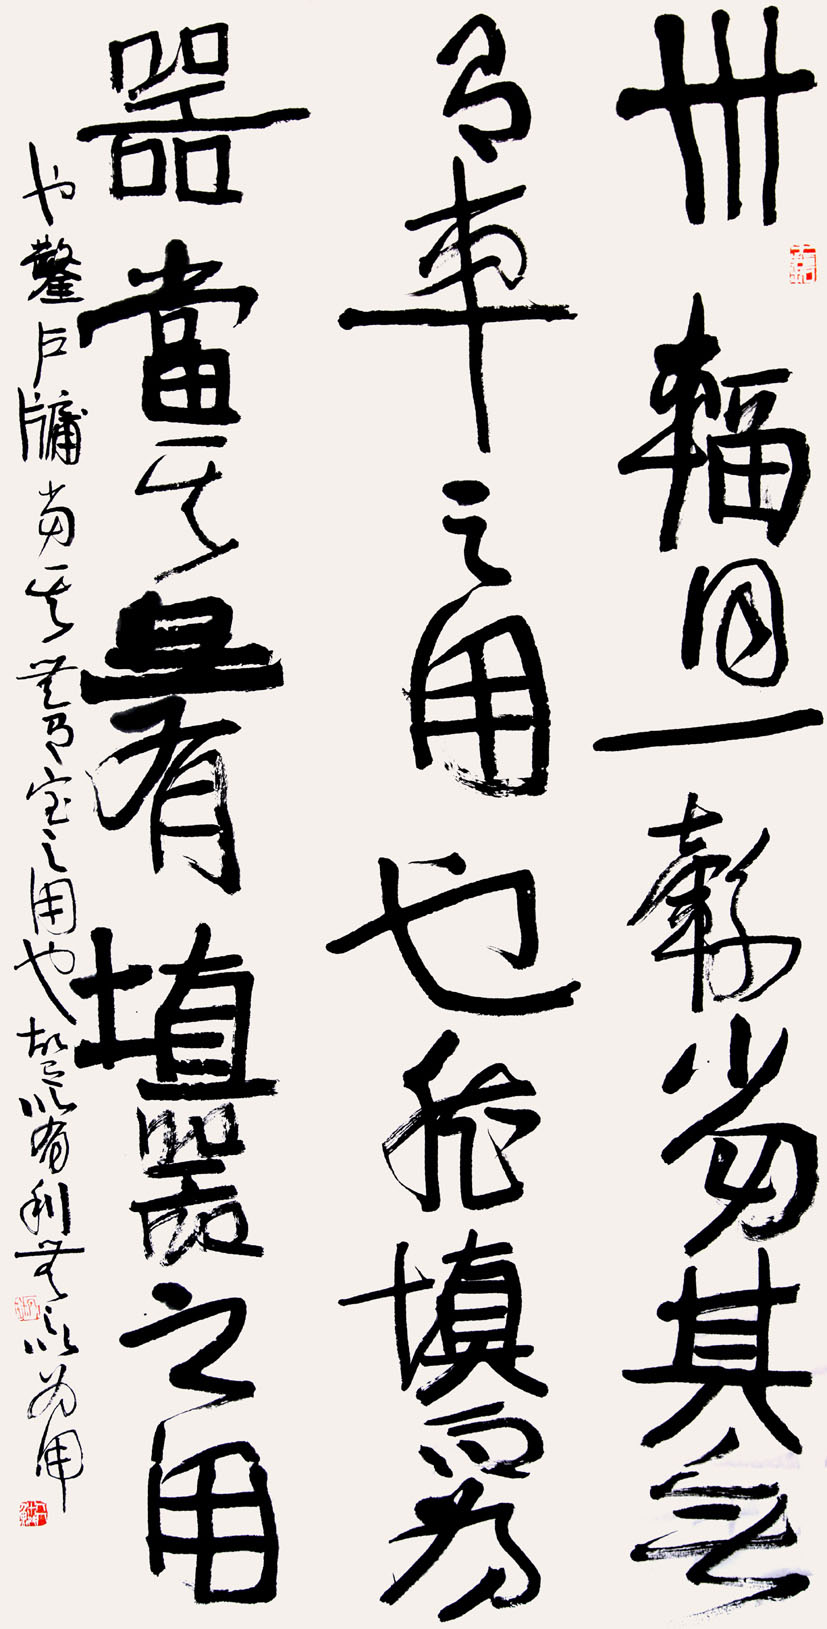 卅輻同一轂当其無
有車之用也填而為
器當其有埴器之用
也鑿戶牖当其無有室之用也故之以為利無之以為用